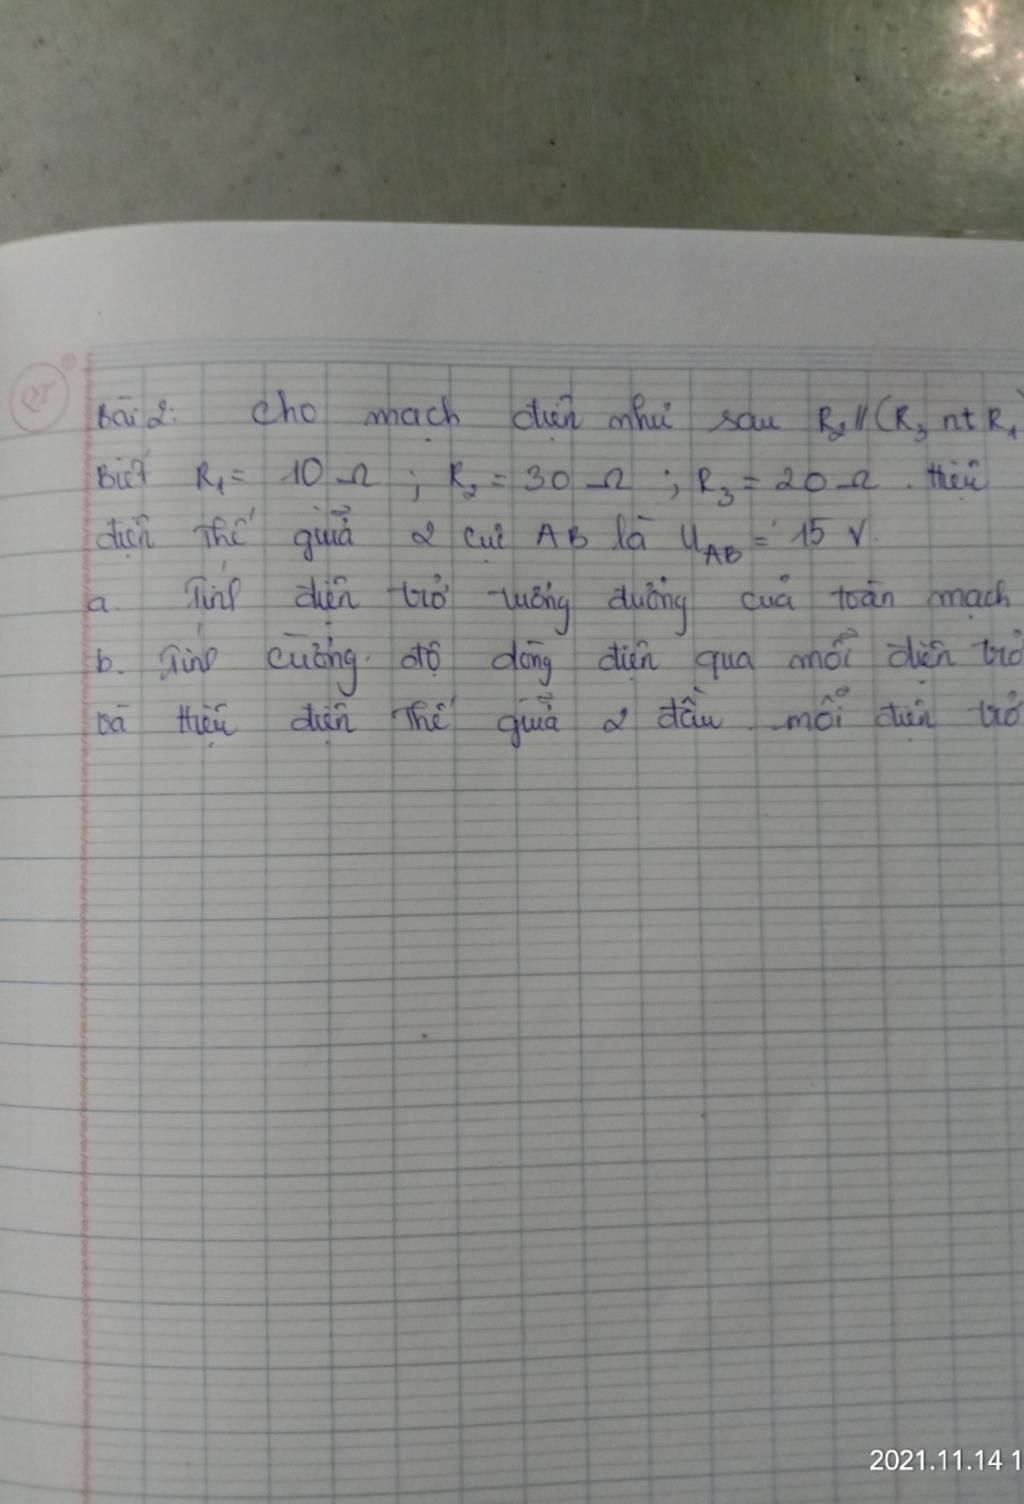 QT
Bài 2: Cho mạch điện như sau R2 // (R3 nt R1)
Biết R1 = 10 Ω ; R2 = 30 Ω ; R3 = 20 Ω . Hiệu
điện thế giữa 2 cực AB là UAB = 15 V.
a. Tính điện trở tương đương của toàn mạch
b. Tính cường độ dòng điện qua mỗi điện trở
và hiệu điện thế giữa 2 đầu mỗi điện trở
2021.11.14 1